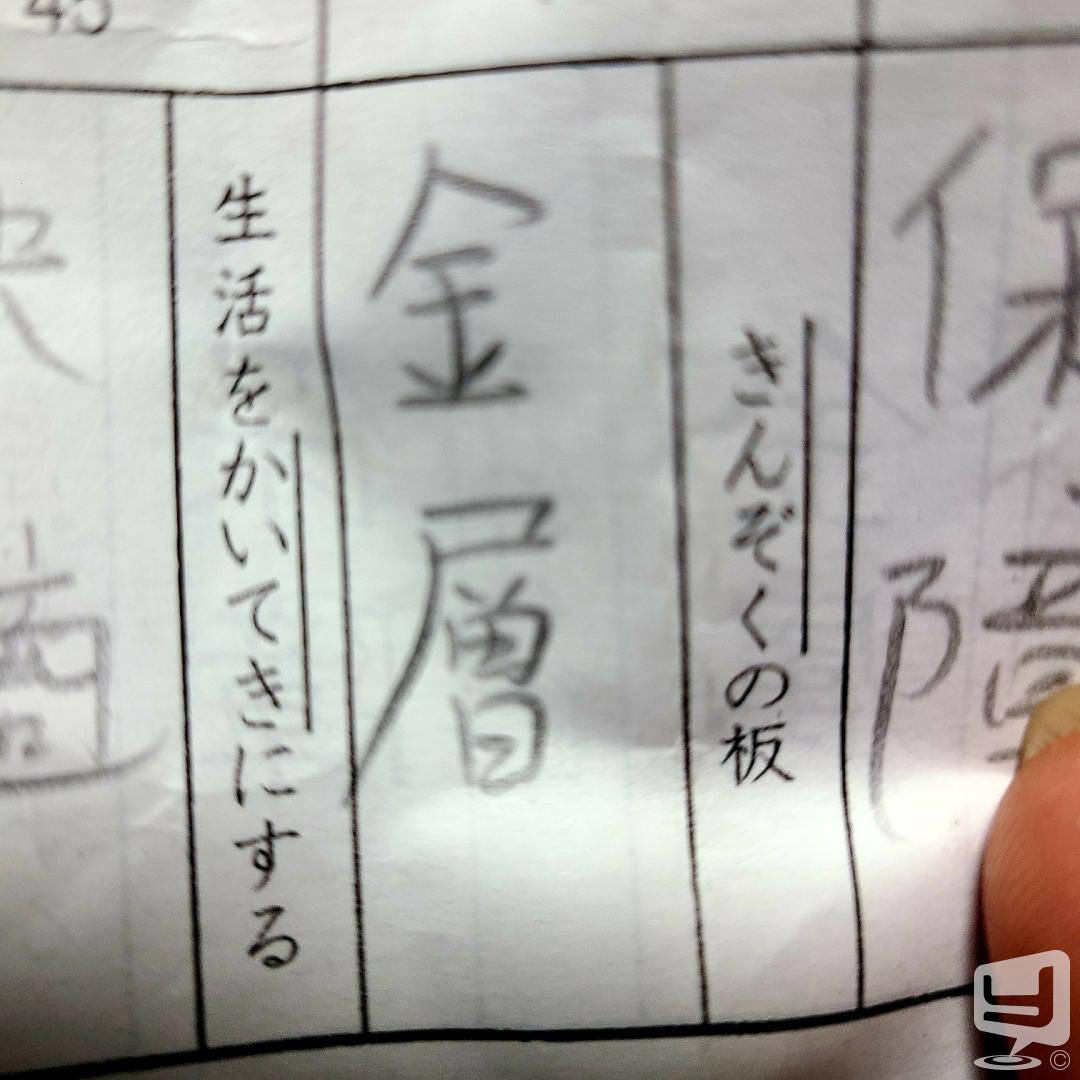 45
保障
きんぞくの板
金層
生活をかいてきにする
快適